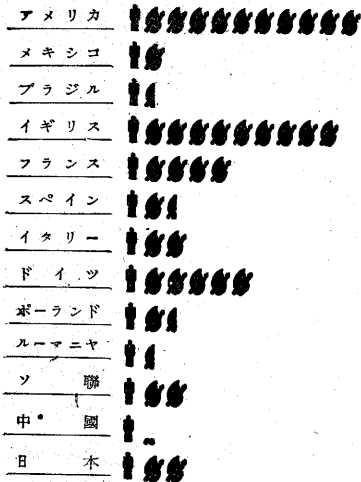 アメリカ
メキシコ
ブラジル
イギリス
フランス
スペイン
イタリー
ドイツ
ポーランド
ルーマニヤ
ソ聯
中國
日本